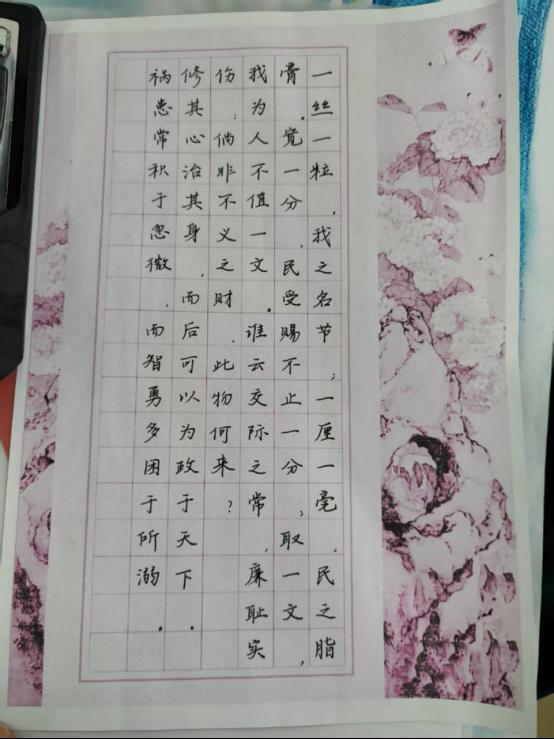 一丝一粒，我之名节；一厘一毫，民之脂
膏。宽一分，民受赐不止一分；取一文，
我为人不值一文。谁云交际之常，廉耻实
伤；倘非不义之财，此物何来？
修其心治其身，而后可以为政于天下。
祸患常积于忽微，而智勇多困于所溺。